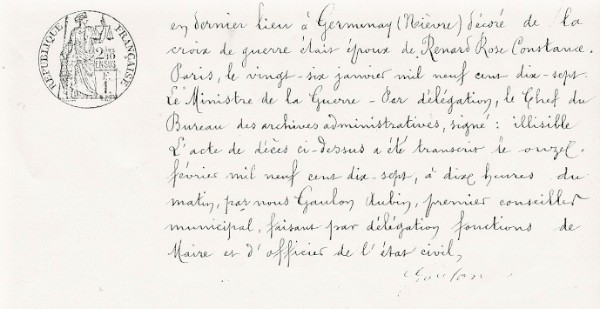 RÉPUBLIQUE FRANÇAISE
en dernier lieu à Germenay (Nièvre) décoré de la
croix de guerre étais époux de Renard Rose Constance.
Paris, le vingt-six janvier mil neuf cent dix-sept.
Le Ministre de la Guerre - Par délégation, le Chef du
Bureau des archives administratives, signé : illisible
L'acte de décès ci-dessus a été transcrit le onze
février mil neuf cent dix-sept, à dix heures du
matin, par nous Gaulon Aubin, premier conseiller
municipal, faisant par délégation fonctions de
Maire et d'officier de l'état civil,
Gaulon